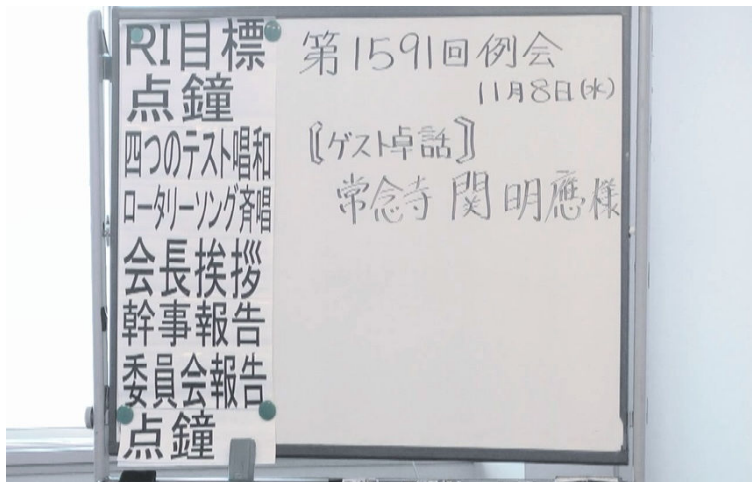 RI目標
点鐘
四つのテスト唱和
ロータリーソング斉唱
会長挨拶
幹事報告
委員会報告
点鐘
第1591回例会
11月8日(水)
〚ゲスト卓話〛
常念寺 関 明應様